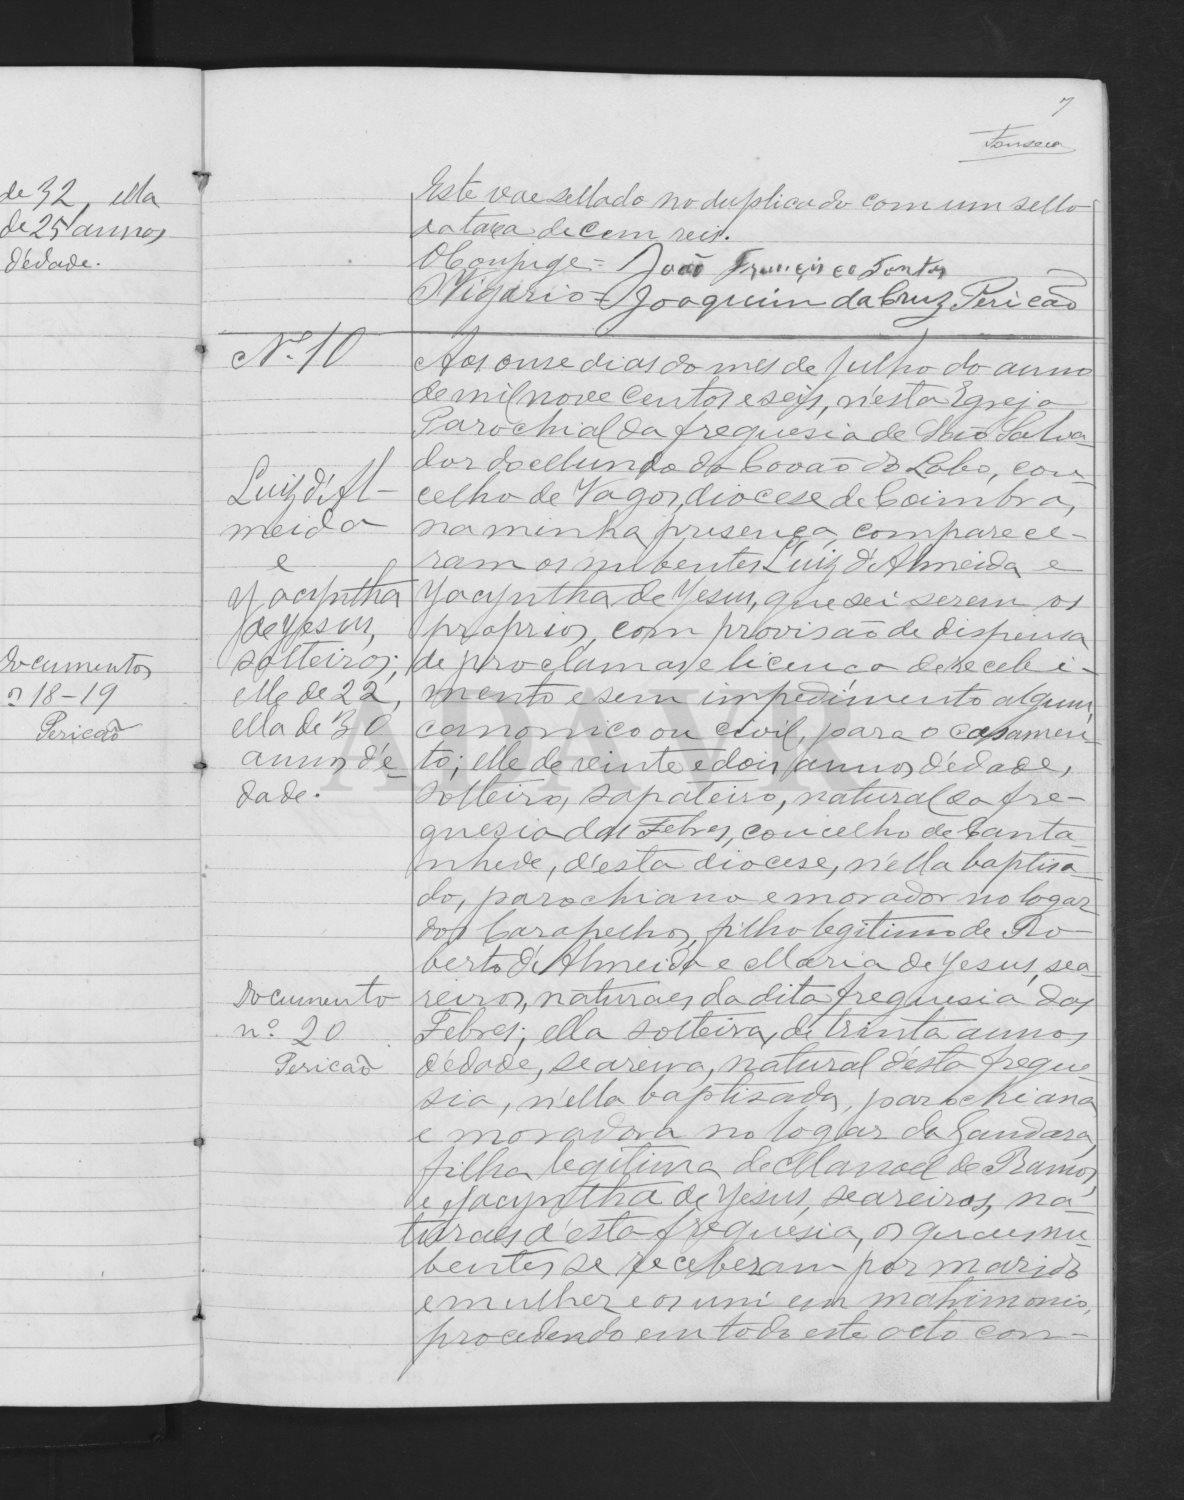 7
Fonseca
de 32, ella
de 25 annos
d'edade.
Documentos
n 18-19
Pericaõ
Este vae sellado no duplicado com um sello
da taxa de cem reis.
O Conjuge = João Francisco Fontes
O Vigario = Joaquim da Cruz Pericão
Nº 10
Luiz d'Al-
meida
e
Yacyntha
de Yesus,
solteiros;
elle de 22,
ella de 30
annos d'e-
dade.
Documento
nº 20
Pericaõ
Aos onse dias do mes de Julho do anno
de mil nove centos e seis, n'esta Egreja
Parochial da freguesia de São Salva-
dor do Mundo do Covaõ do Lobo, con-
celho de Vagos, diocese de Coimbra,
na minha presença, comparece-
ram os nubentes Luiz d'Almeida e
Yacyntha de Yesus, que sei serem os
proprios, com provisaõ de dispensa
de proclamas e licença de recebi-
mento e sem impedimento algum,
canonico ou civil, para o casamen-
to; elle de vinte e dois annos d'edade,
solteiro, sapateiro, natural da fre-
guesia das Febres, concelho de Canta-
nhede, d'esta diocese, n'ella baptisa-
do, parochiano e morador no logar
dos Carapelhos, filho legitimo de Ro-
berto d'Almeida e Maria de Yesus, sea-
reiros, naturaes da dita freguesia das
Febres; ella solteira, de trinta annos
d'edade, seareira, natural d'esta fregue-
sia, n'ella baptisada, parochiana
e moradora no logar da Gandara,
filha legitima de Manoel de Ramos,
e Yacyntha de Yesus, seareiros, na-
turaes d'esta freguesia, os quaes nu-
bentes se receberam por marido
e mulher e os uni em matrimonio,
procedendo em todo este acto con-
ADAVR